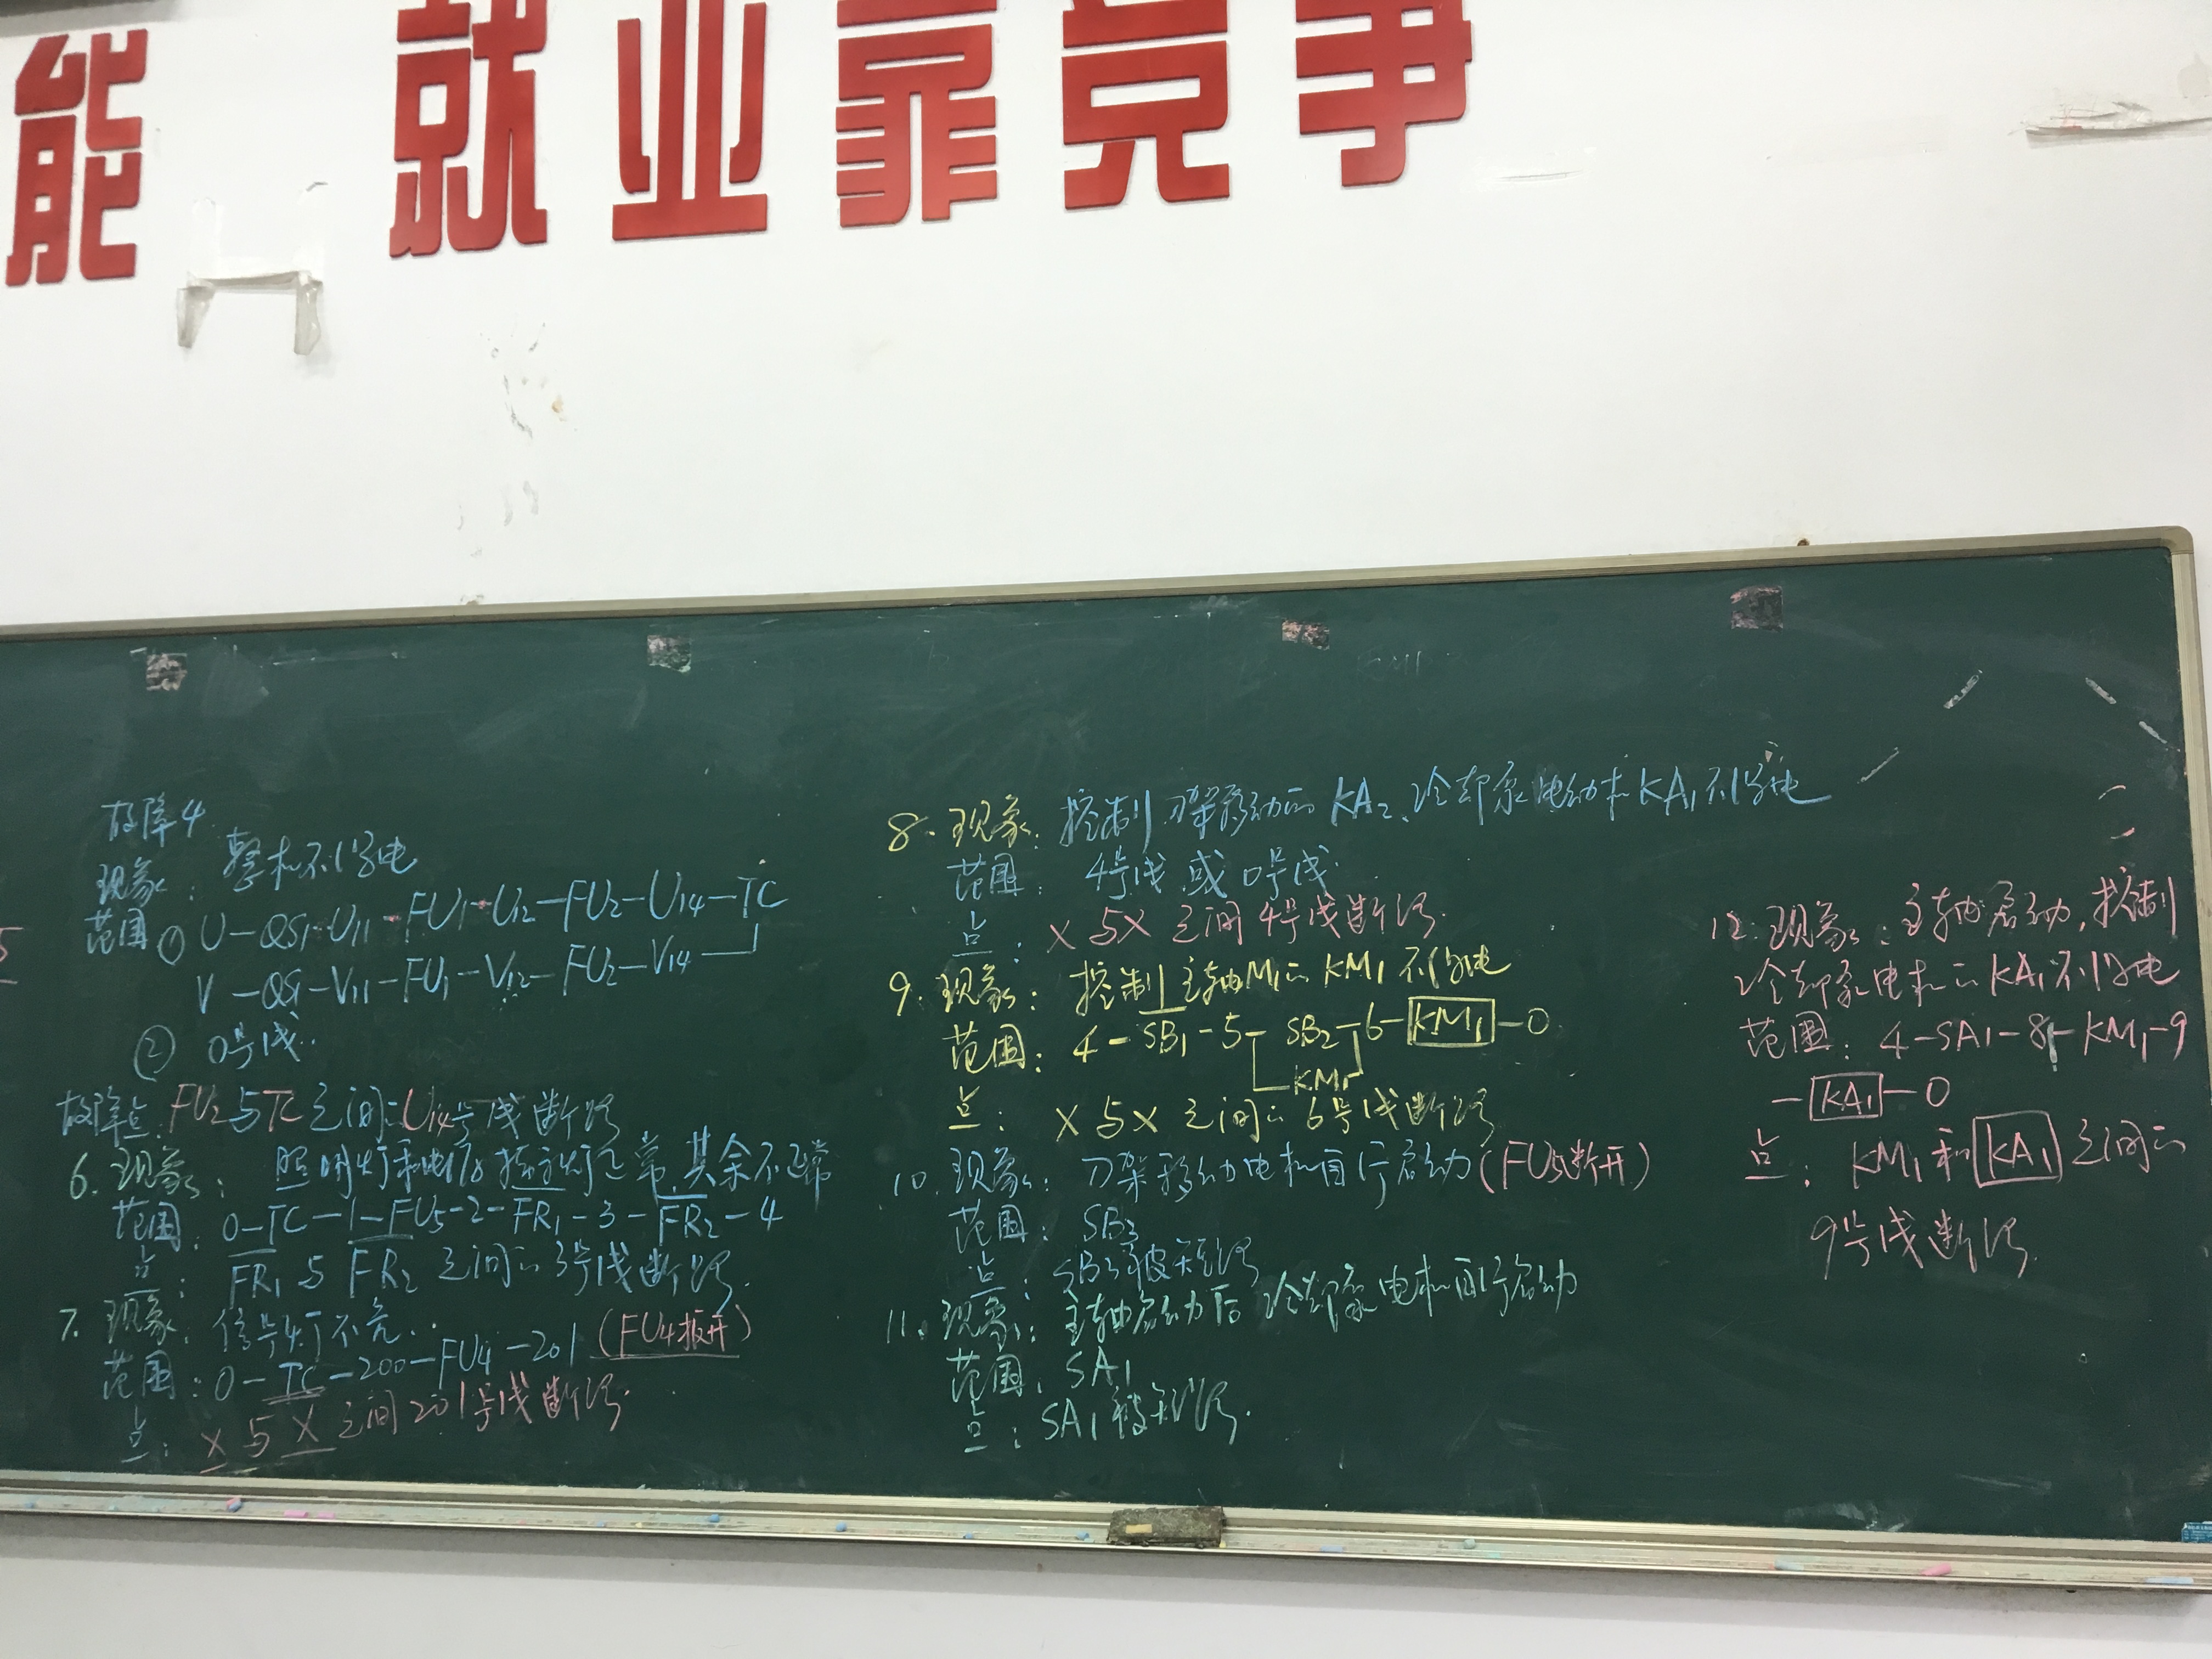 能 就业靠竞争
故障4
现象：整机不得电
范围 ① U-QS1-U11-FU1-U12-FU2-U14-TC
V-QS1-V11-FU1-V12-FU2-V14
② 0号线.
故障点：FU2与TC之间的U14号线断路
6. 现象：照明灯和电源指示灯正常，其余不正常
范围：0-TC-1-FU5-2-FR1-3-FR2-4
点：FR1与FR2之间的3号线断路.
7. 现象：信号灯不亮.
范围：0-TC-200-FU4-201 (FU4扳开)
点：X与X之间201号线断路.
8. 现象：控制刀架移动的KA2、冷却泵电动机KA1不得电
范围：4号线或0号线.
点：X与X之间4号线断路.
9. 现象：控制主轴M1的KM1不得电
范围：4-SB1-5-SB2-6-KM1-0
KM1
点：X与X之间的6号线断路
10. 现象：刀架移动电机自行启动(FU5断开)
范围：SB3
点：SB3被短路
11. 现象：主轴启动后冷却泵电机自行启动
范围：SA1
点：SA1被短路.
12. 现象：主轴启动，控制
冷却泵电机的KA1不得电
范围：4-SA1-8-KM1-9
-KA1-0
点：KM1和KA1之间的
9号线断路.